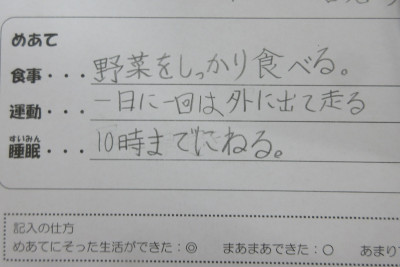 めあて
食事・・・野菜をしっかり食べる。
運動・・・一日に一回は、外に出て走る
すいみん
睡眠・・・10時までにねる。
記入の仕方
めあてにそった生活ができた：◎　まあまあできた：○　あまり